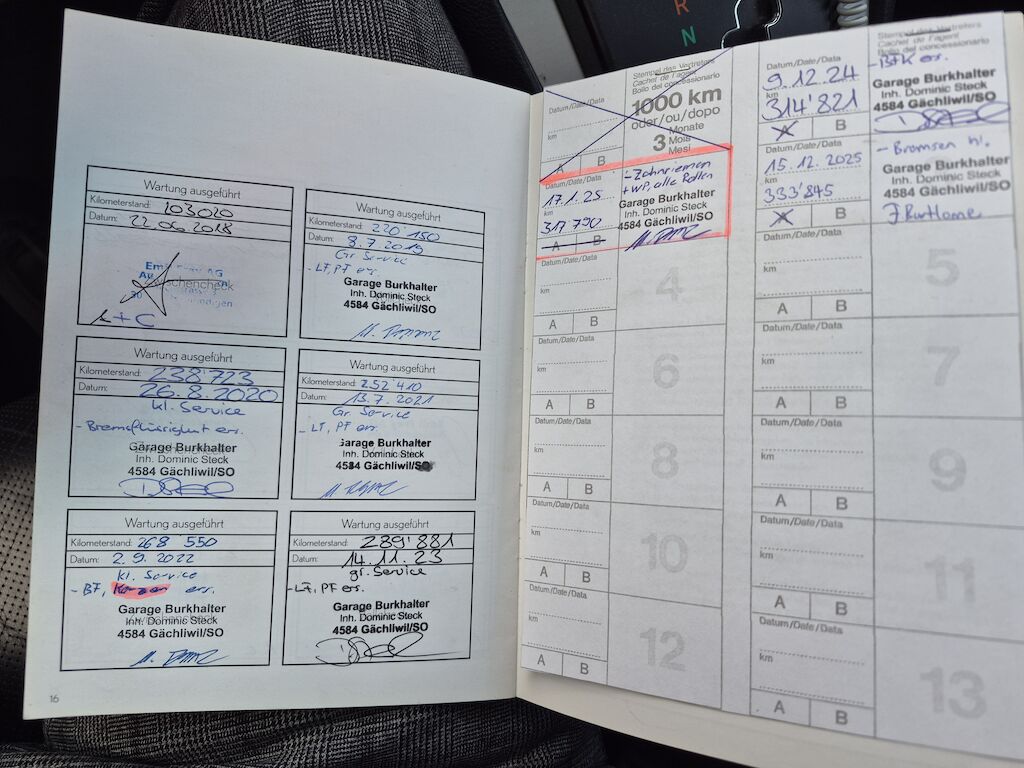 R
N
Wartung ausgeführt
Kilometerstand: 103020
Datum: 22.06.2018
A + C
Wartung ausgeführt
Kilometerstand: 220 150
Datum: 8.7.2019
Gr Service
- LF, PF ers.
Garage Burkhalter
Inh. Dominic Steck
4584 Gächliwil/SO
Wartung ausgeführt
Kilometerstand: 238'723
Datum: 26.8.2020
kl. Service
- Bremsflüssigkeit ers.
Garage Burkhalter
Inh. Dominic Steck
4584 Gächliwil/SO
Wartung ausgeführt
Kilometerstand: 252'410
Datum: 13.7.2021
Gr. Service
- LF, PF ers.
Garage Burkhalter
Inh. Dominic Steck
4584 Gächliwil/SO
Wartung ausgeführt
Kilometerstand: 268 550
Datum: 2.9.2022
kl. Service
- BF, Kerzen ers.
Garage Burkhalter
Inh. Dominic Steck
4584 Gächliwil/SO
Wartung ausgeführt
Kilometerstand: 289'881
Datum: 14.11.23
gr. Service
- LF, PF ers.
Garage Burkhalter
Inh. Dominic Steck
4584 Gächliwil/SO
16
Datum/Date/Data
km
A B
Stempel des Vertreters
Cachet de l'agent
Bollo del concessionario
1000 km
oder/ou/dopo
3 Monate
Mois
Mesi
Datum/Date/Data
9.12.24
km
314'821
A B
Stempel des Vertreters
Cachet de l'agent
Bollo del concessionario
- BFK ers.
Garage Burkhalter
Inh. Dominic Steck
4584 Gächliwil/SO
Datum/Date/Data
17.1.25
km
317 790
A B
- Zahnriemen
+ WP, alle Rollen
Garage Burkhalter
Inh. Dominic Steck
4584 Gächliwil/SO
Datum/Date/Data
15.12.2025
km
333'845
A B
- Bremsen hi.
Garage Burkhalter
Inh. Dominic Steck
4584 Gächliwil/SO
Datum/Date/Data
km
A B
4
Datum/Date/Data
km
A B
5
Datum/Date/Data
km
A B
6
Datum/Date/Data
km
A B
7
Datum/Date/Data
km
A B
8
Datum/Date/Data
km
A B
9
Datum/Date/Data
km
A B
10
Datum/Date/Data
km
A B
11
Datum/Date/Data
km
A B
12
Datum/Date/Data
km
A B
13